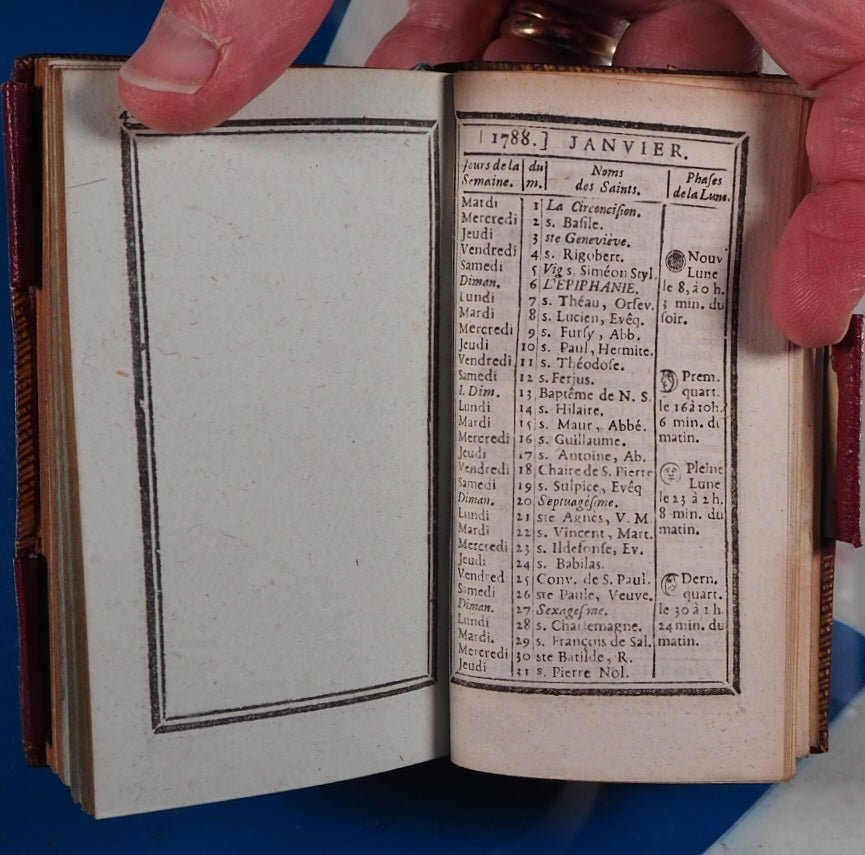 [1788.] JANVIER.
Jours de la Semaine. | du m. | Noms des Saints. | Phases de la Lune.
Mardi 1 La Circoncision.
Mercredi 2 s. Basile.
Jeudi 3 ste Geneviève.
Vendredi 4 s. Rigobert.
Samedi 5 Vig s. Siméon Styl.
Diman. 6 L'EPIPHANIE.
Lundi 7 s. Théau, Orfev.
Mardi 8 s. Lucien, Evêq.
Mercredi 9 s. Fursy, Abb.
Jeudi 10 s. Paul, Hermite.
Vendredi 11 s. Théodose.
Samedi 12 s. Ferjus.
I. Dim. 13 Baptême de N. S.
Lundi 14 s. Hilaire.
Mardi 15 s. Maur, Abbé.
Mercredi 16 s. Guillaume.
Jeudi 17 s. Antoine, Ab.
Vendredi 18 Chaire de S. Pierre
Samedi 19 s. Sulpice, Evêq
Diman. 20 Septuagésime.
Lundi 21 ste Agnès, V. M.
Mardi 22 s. Vincent, Mart.
Mercredi 23 s. Ildefonse, Ev.
Jeudi 24 s. Babilas.
Vendred 25 Conv. de S. Paul.
Samedi 26 ste Paule, Veuve.
Diman. 27 Sexagésime.
Lundi 28 s. Charlemagne.
Mardi. 29 s. François de Sal.
Mercredi 30 ste Batilde, R.
Jeudi 31 s. Pierre Nol.
Nouv
Lune
le 8, à 0 h.
3 min. du
soir.
Prem.
quart.
le 16 à 10h.
6 min. du
matin.
Pleine
Lune
le 23 à 2h.
8 min. du
matin.
Dern.
quart.
le 30 à 1 h.
24 min. du
matin.